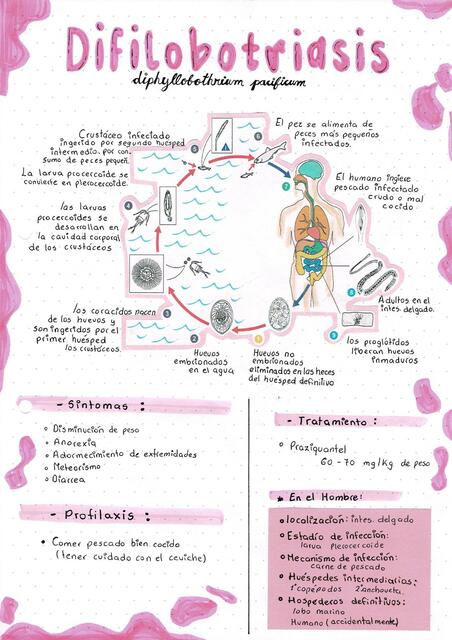 Difilobotriasis
diphyllobothrium pacificum
Crustáceo infectado
ingerido por segundo huésped
intermedio, por con-
sumo de peces pequeñ.
La larva procercoide se
convierte en plerocercoide.
las larvas
procercoides se
desarrollan en
la cavidad corporal
de los crustáceos
los coracidos nacen
de los huevos y
son ingeridos por el
primer huésped
los crustáceos.
Huevos
embrionados
en el agua
Huevos no
embrionados
eliminados en las heces
del huésped definitivo
El pez se alimenta de
peces más pequeños
infectados.
El humano ingiere
pescado infectado
crudo o mal
cocido
Adultos en el
intes. delgado.
los proglótidos
liberan huevos
inmaduros
1
2
3
4
5
6
7
8
9
- Síntomas :
Disminución de peso
Anorexia
Adormecimiento de extremidades
Meteorismo
Diarrea
- Profilaxis :
• Comer pescado bien cocido
(tener cuidado con el ceviche)
- Tratamiento :
Praziquantel
60 - 70 mg/kg de peso
* En el Hombre:
localización: intes. delgado
Estadío de infección:
larva plerocercoide
Mecanismo de infección:
carne de pescado
Huéspedes intermediarios:
1° copépodos 2° anchoveta.
Hospederos definitivos:
lobo marino
Humano (accidentalmente)